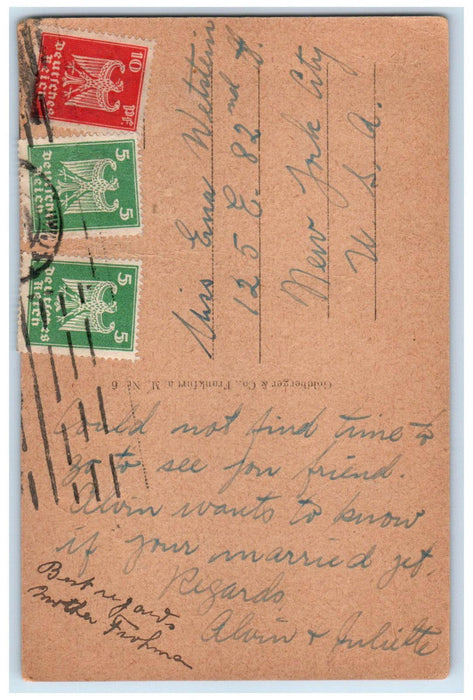 10 Pf.
Deutsches
Reich
5 5
Deutsches
Reich
5 5
Deutsches
Reich
Miss Erna Wetstein
125 E. 82nd St.
New York City
U. S. A.
Goldberger & Co., Frankfurt a M. № 6
Could not find time to
go to see you friend.
Alvin wants to know
if your married yet.
Regards
Alvin & Juliette
Best regards
Mother Frohma